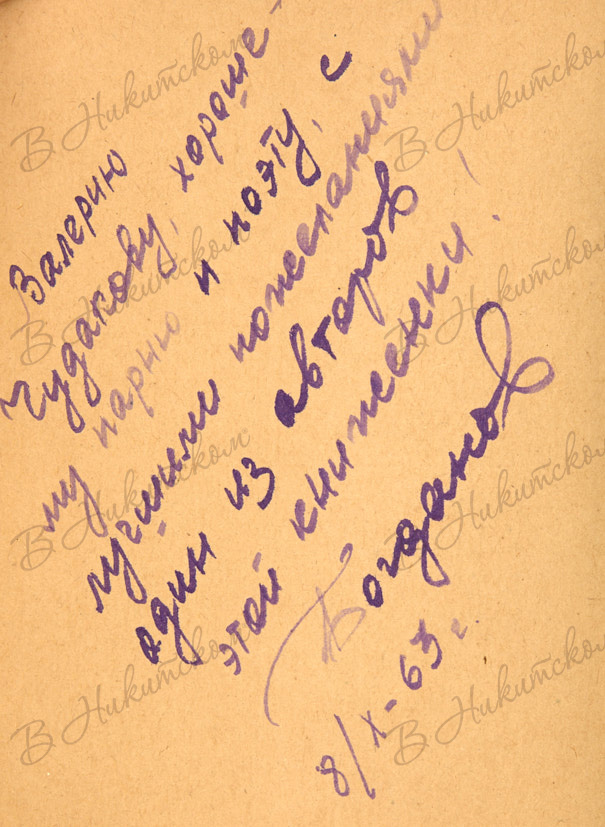 Валерию
Чудакову, хороше-
му парню и поэту, с
лучшими пожеланиями
один из авторов
этой книжсенки!
Богданов
8/X-63 г.
В Никитском
В Никитском
В Никитском
В Никитском
В Никитском
В Никитском
В Никитском
В Никитском